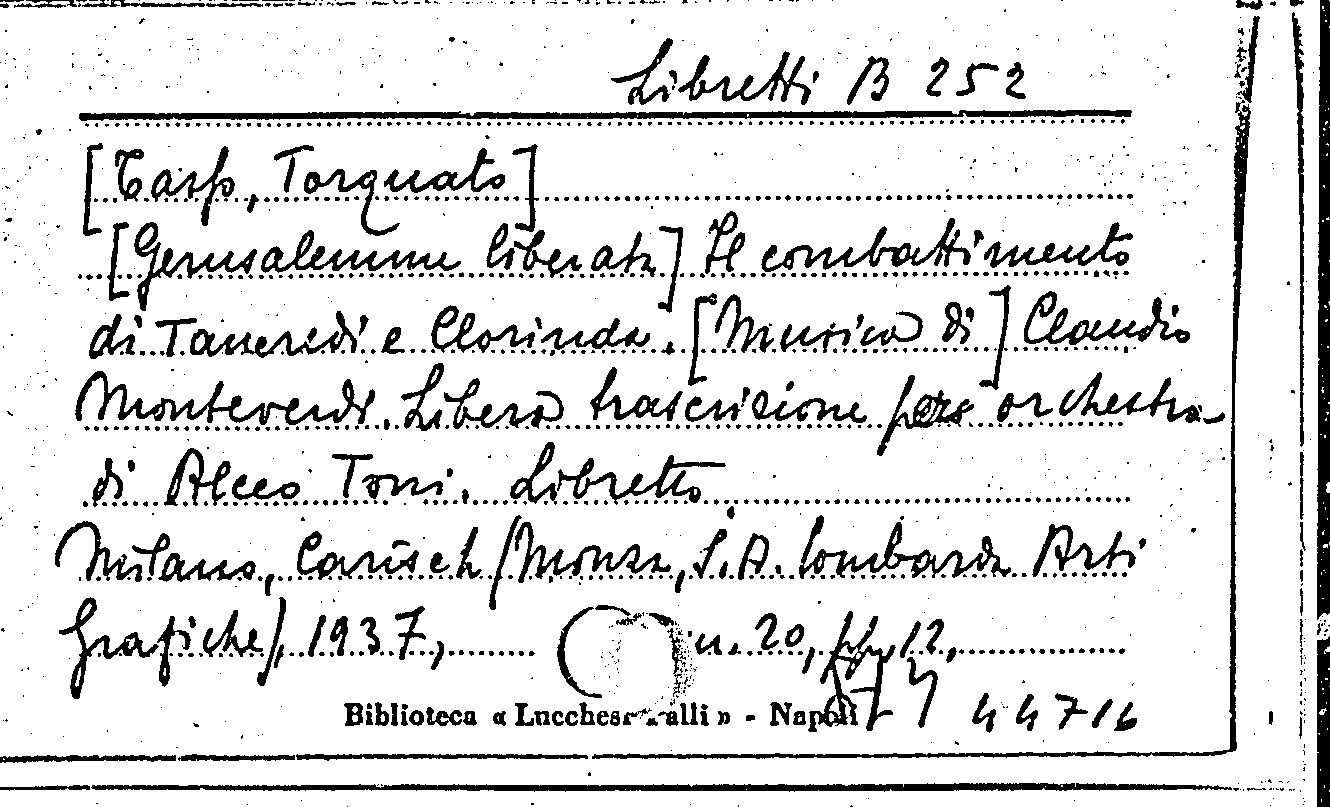 Libretti B 252
[Tasso, Torquato]
[Gerusalemme liberata] Il combattimento
di Tancredi e Clorinda. [Musica di] Claudio
Monteverdi. Libera trascrizione per orchestra
di Alceo Toni. Libretto.
Milano, Carisch (Monza, S. A. Lombarda Arti
Grafiche), 1937, 20, pp. 12,
Biblioteca « Lucchesi alli » - Napoli 44716